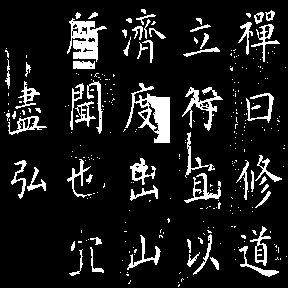 禪曰修道
立行宜以
濟度出山
所聞也冗
盡弘